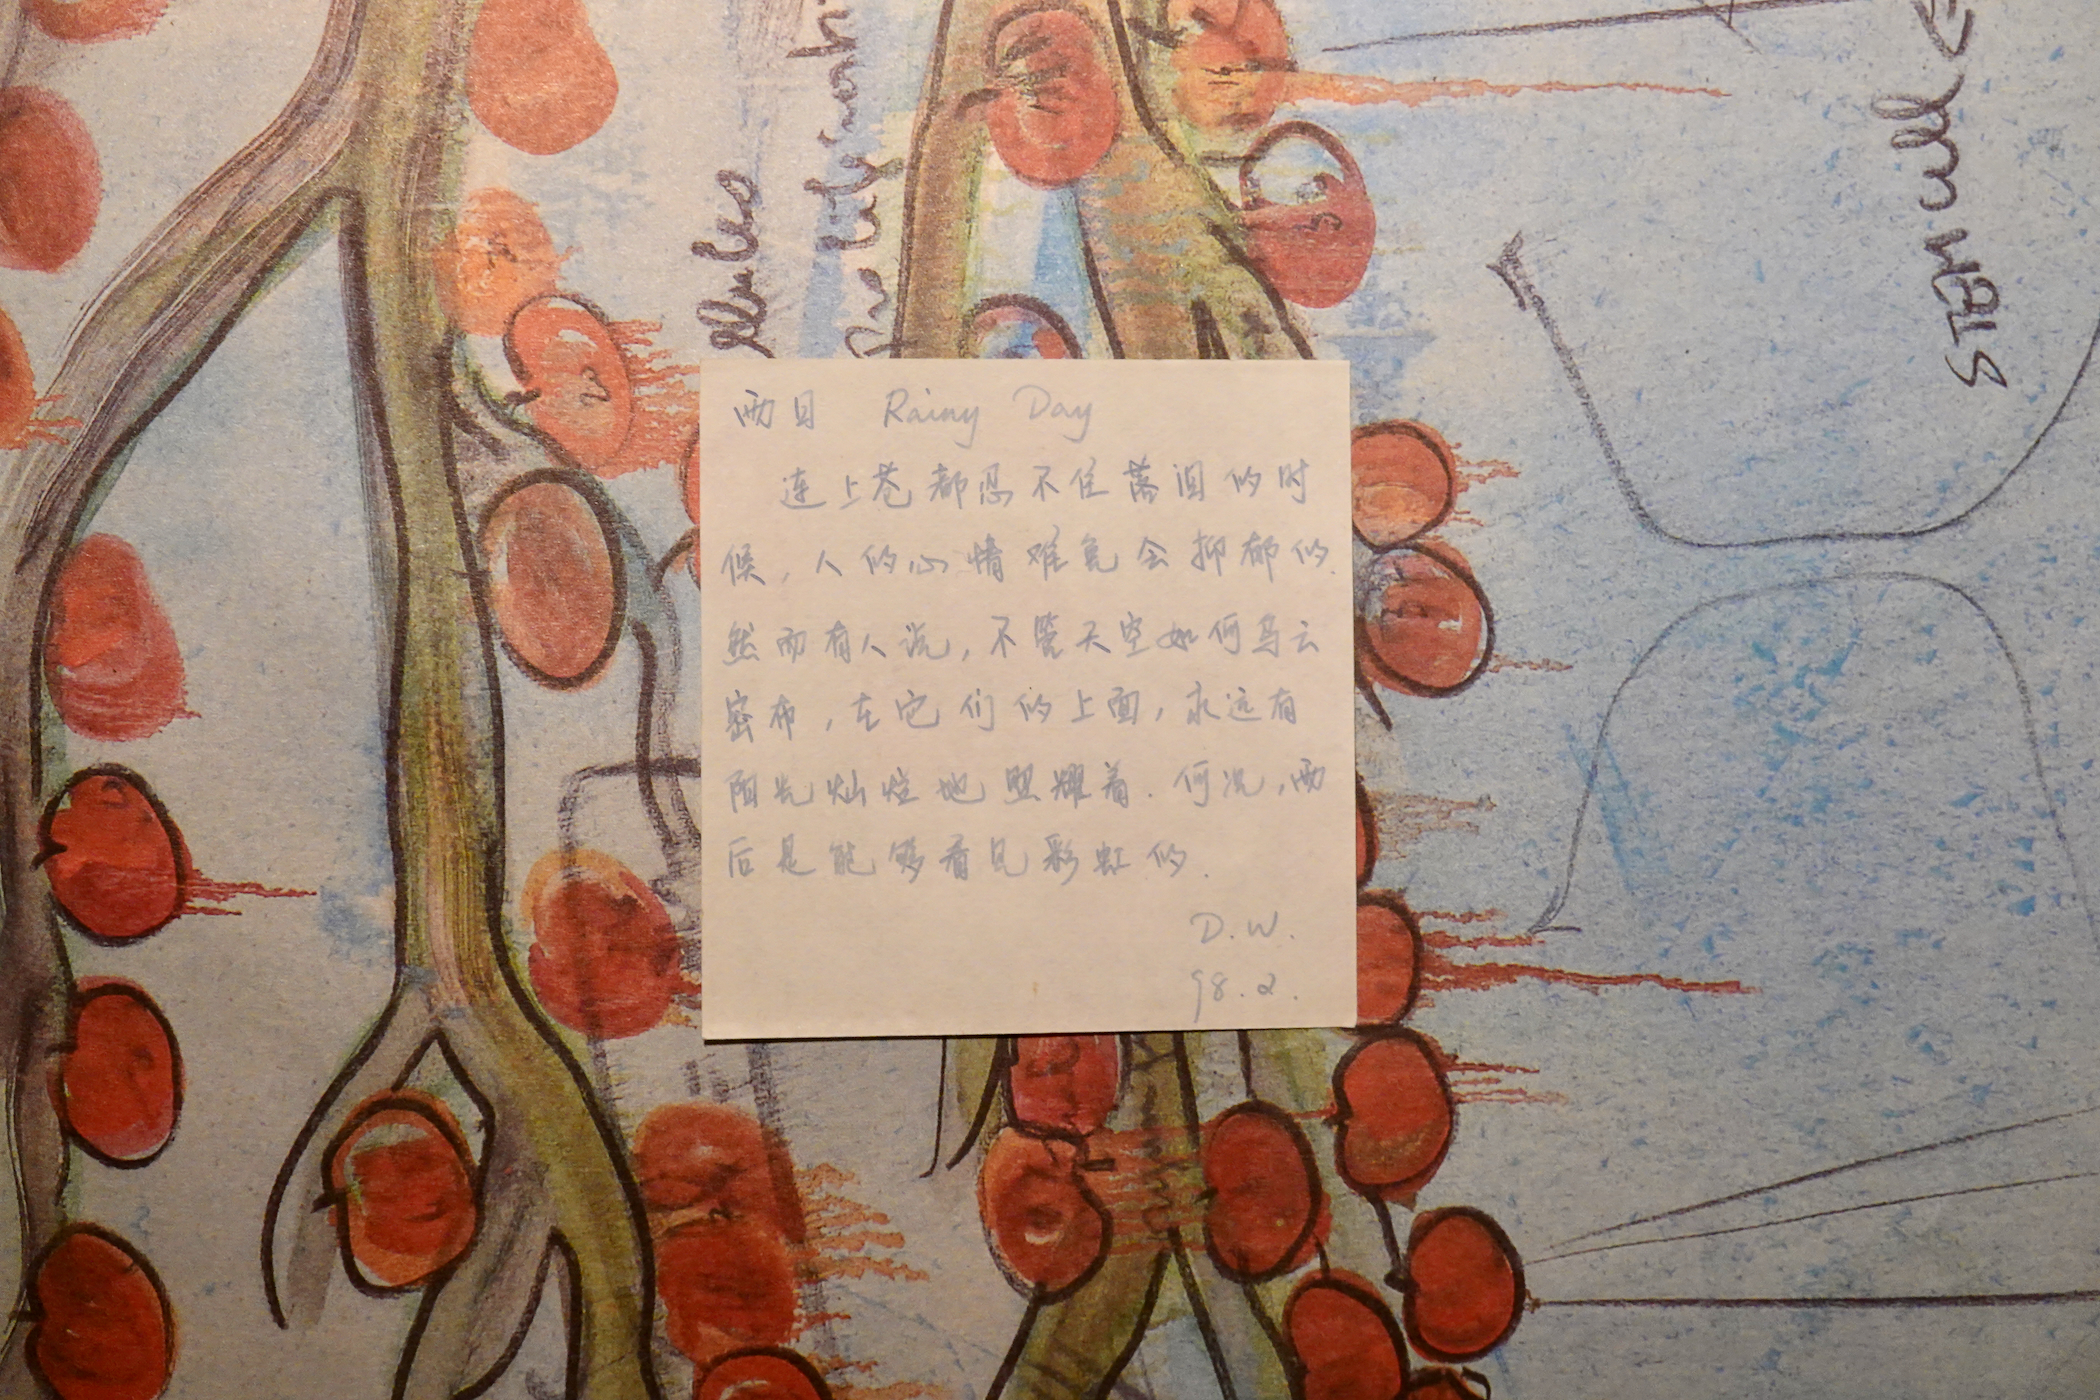 雨日 Rainy Day
连上苍都忍不住落泪的时
候，人的心情难免会抑郁的.
然而有人说，不管天空如何乌云
密布，在它们的上面，永远有
阳光灿烂地照耀着.何况，雨
后是能够看见彩虹的.
D.W.
98.2.